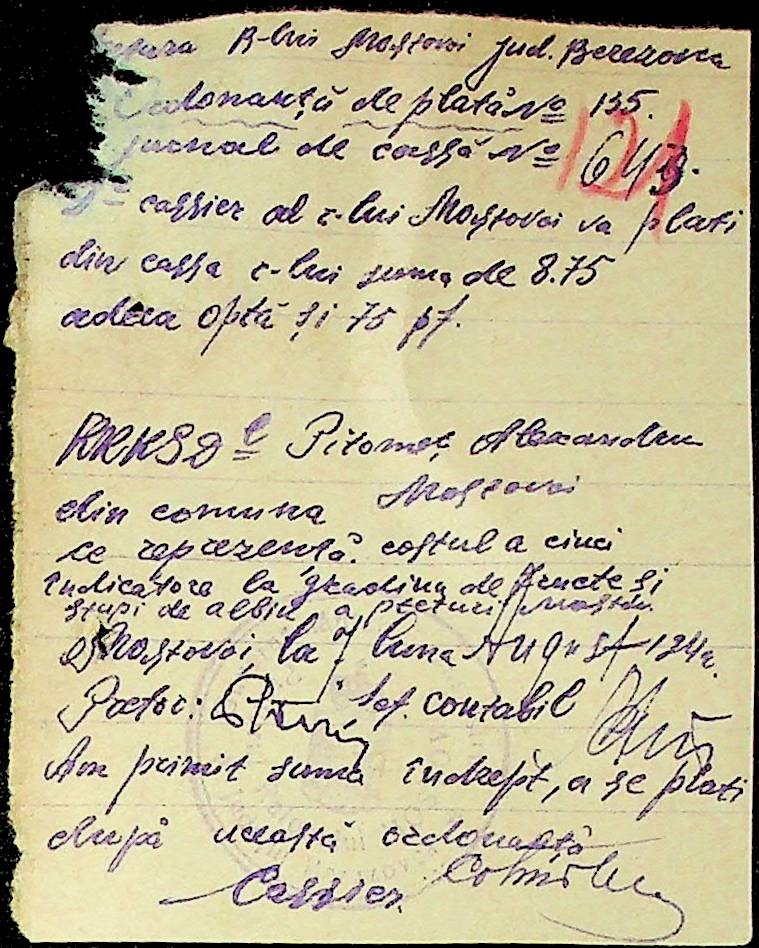 R-lui Mostovoi jud. Berezovca
Ordonanță de plată No 135.
121
jurnal de cassă No 643.
Dl cassier al r-lui Mostovoi va plati
din cassa r-lui suma de 8.75
adeca optă și 75 pf.
RKKS Dl Pitomeț Alexandru
din comuna Mostovoi
ce reprezentă costul a cinci
indicatore la gradina de fructe și
stupi de albine a preturii Mostov.
Mostovoi, la 7 luna August 194
Pretor: Șef. contabil
Am primit suma îndrept, a se plati
după această ordonanță
Cassier